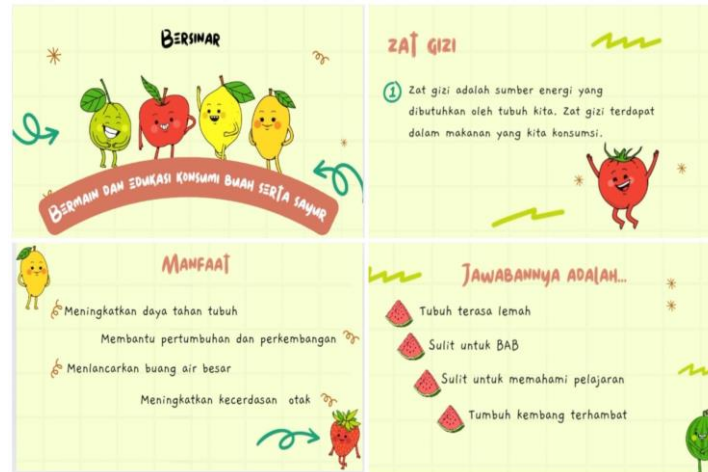 BERSINAR
BERMAIN DAN EDUKASI KONSUMSI BUAH SERTA SAYUR
ZAT GIZI
1 Zat gizi adalah sumber energi yang
dibutuhkan oleh tubuh kita. Zat gizi terdapat
dalam makanan yang kita konsumsi.
MANFAAT
Meningkatkan daya tahan tubuh
Membantu pertumbuhan dan perkembangan
Menlancarkan buang air besar
Meningkatkan kecerdasan otak
JAWABANNYA ADALAH...
Tubuh terasa lemah
Sulit untuk BAB
Sulit untuk memahami pelajaran
Tumbuh kembang terhambat